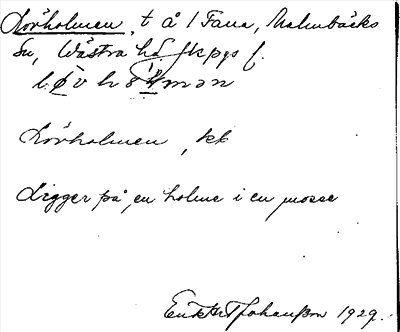 Lövholmen, t å 1 Fana, Malmbäcks
sn, Västra hd Jkpgs l.
Lövholmen, kb
Ligger på en holme i en mosse
Johansson 1929.